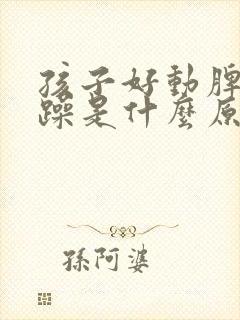 孩子好動脾
躁是什麼原
孫阿婆